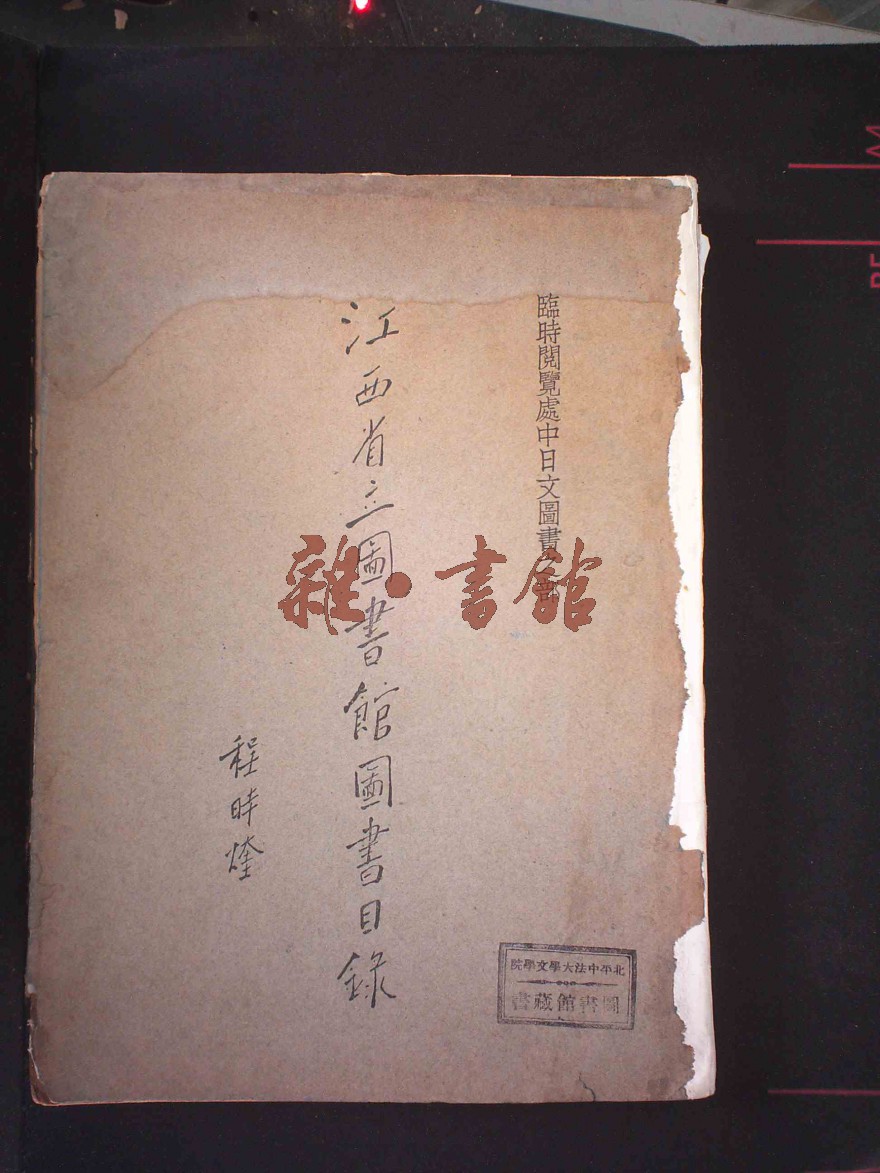 臨時閱覽處中日文圖書
江西省立圖書館圖書目錄
程時煃
雜·書館
北平中法大學文學院
圖書館藏書